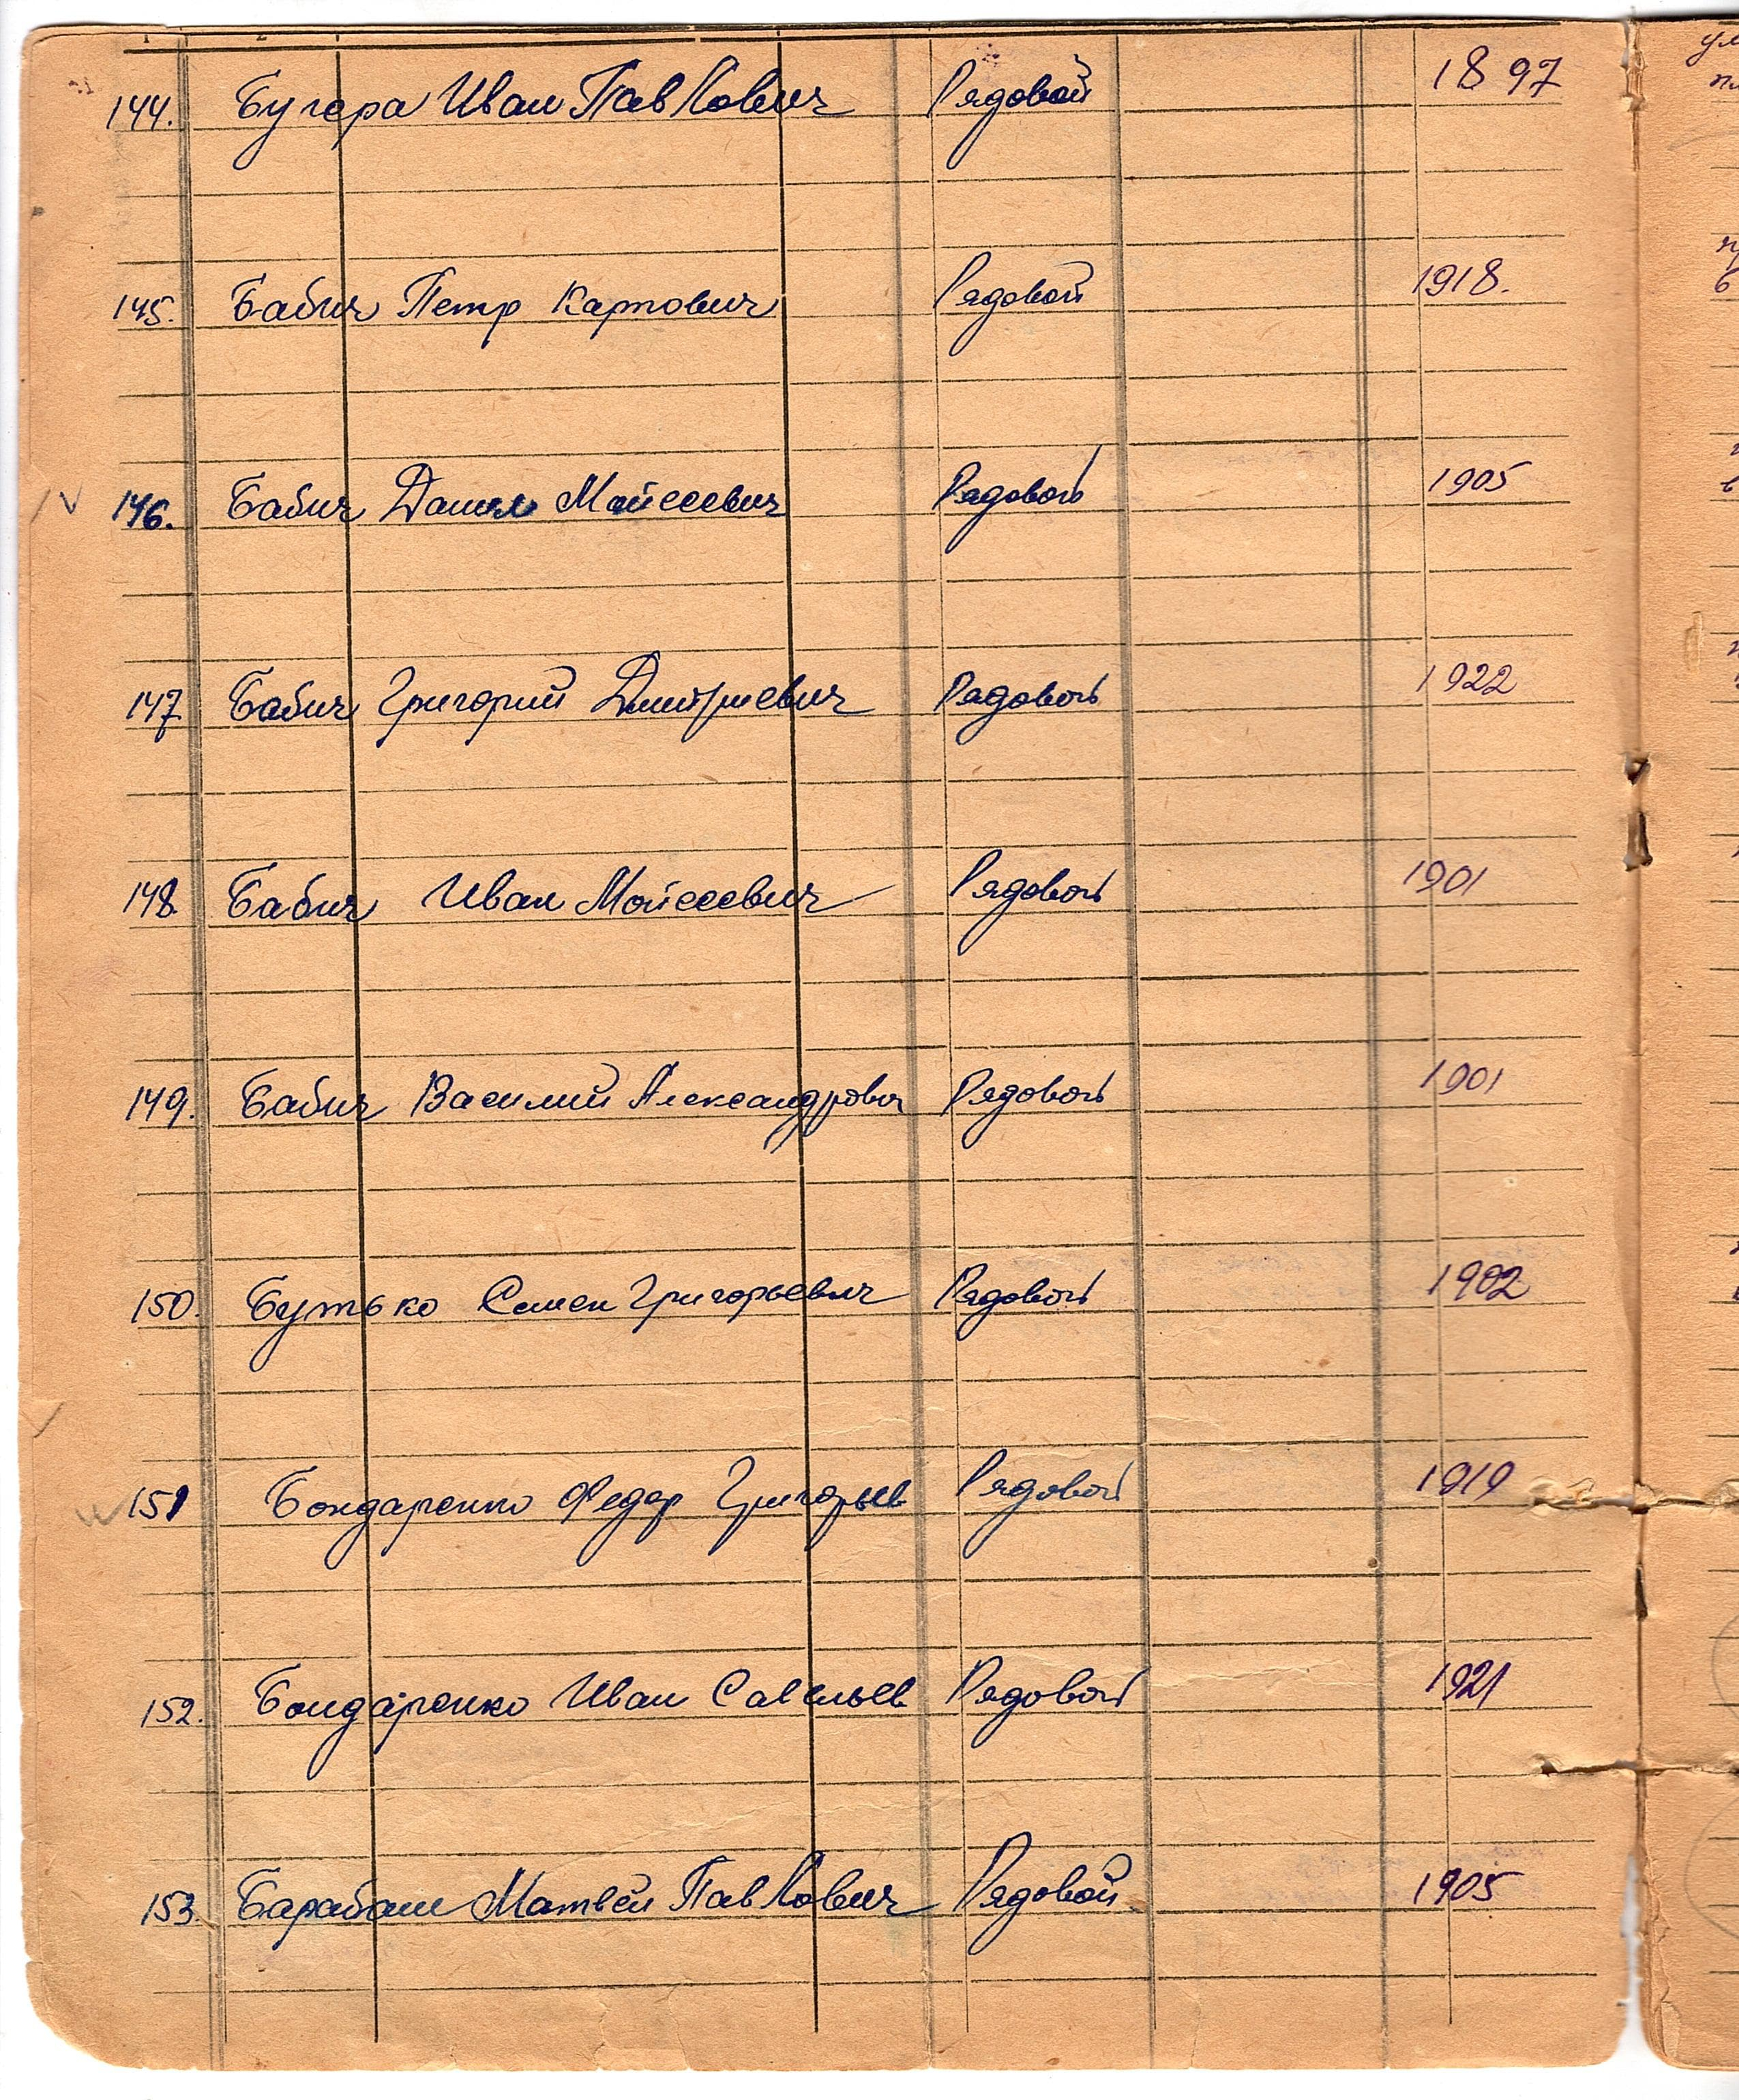 1 2
144. Бугера Иван Павлович Рядовой 1897
145. Бабич Петр Карпович Рядовой 1918.
146. Бабич Данил Мойсеевич Рядовой 1905
147 Бабич Григорий Дмитриевич Рядовой 1922
148. Бабич Иван Мойсеевич Рядовой 1901
149. Бабич Василий Александрович Рядовой 1901
150. Бутько Семен Григорьевич Рядовой 1902
151 Бондаренко Федор Григорьев Рядовой 1919
152. Бондаренко Иван Савельев Рядовой 1921
153. Барабаш Матвей Павлович Рядовой 1905